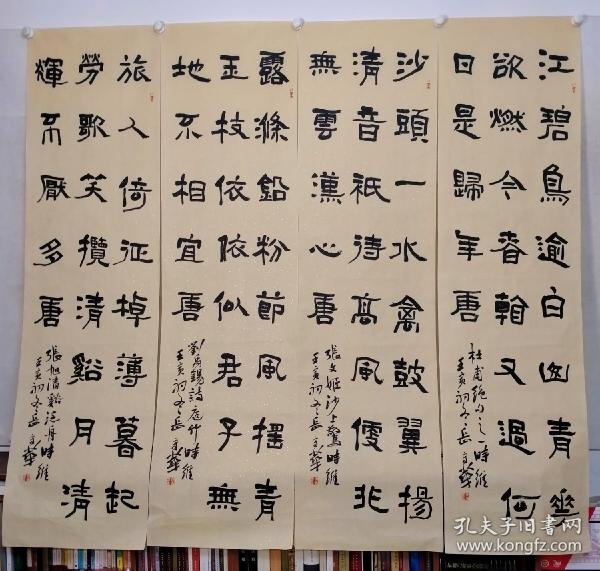 江碧鳥逾白山青華
欲燃今春看又過何
日是歸年唐
杜甫絕句之一時維
初冬岳
沙頭一水禽鼓翼揚
清音祇待高風便非
無雲漢心唐
張文姬沙上鷺時維
初冬岳
露滌鉛粉節風搖青
玉枝依依似君子無
地不相宜唐
劉禹錫詩庭竹時維
初冬岳
旅人倚征棹薄暮起
勞歌笑攬清谿月清
輝不厭多唐
張旭清谿泛舟時維
初冬岳
孔夫子旧书网
www.kongfz.com